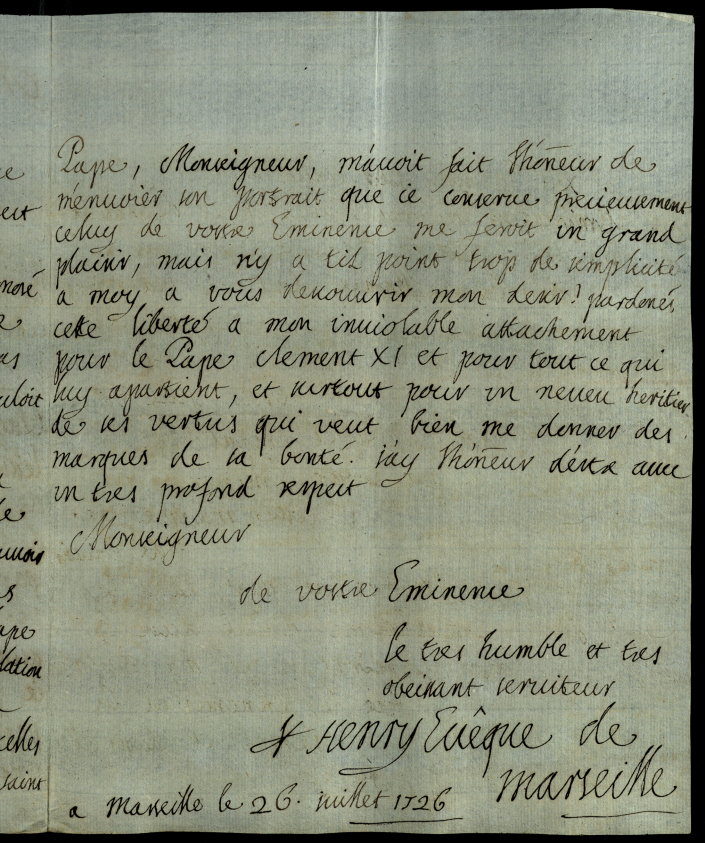 Pape, Monseigneur, m'avoit fait l'hoñeur de
m'enuoier son portrait que ie conserue precieusement
celuy de vostre Eminence me feroit un grand
plaisir, mais n'y a til point trop de simplicité
a moy a vous decouurir mon desir? pardonés
cette liberté a mon inuiolable attachement
pour le Pape clement XI et pour tout ce qui
luy apartient, et surtout pour un neueu heritier
de ses vertus qui veut bien me donner des
marques de sa bonté. i'ay l'hoñeur d'éstre auec
un tres profond respect
Monseigneur
de vostre Eminence
le tres humble et tres
obeissant seruiteur
+ Henry Euêque de
marseille
a marseille le 26. iuillet 1726